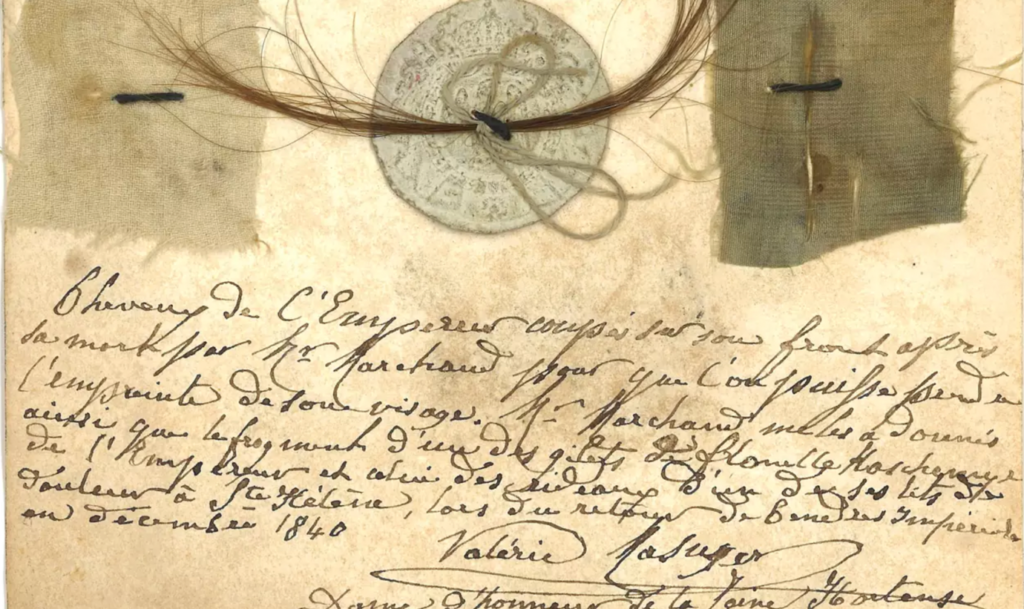 Cheveux de l'Empereur coupés sur son front après
sa mort par Mr Marchand pour que l'on puisse prendre
l'empreinte de son visage. Mr Marchand me les a donnés
ainsi que le fragment d'un des gilets de flanelle
de l'Empereur et celui des rideaux d'un de ses lits de
douleur à Ste Hélène, lors du retour de Cendres Impériales
en décembre 1840
Valérie Masuyer
Dame d'honneur de la reine Hortense